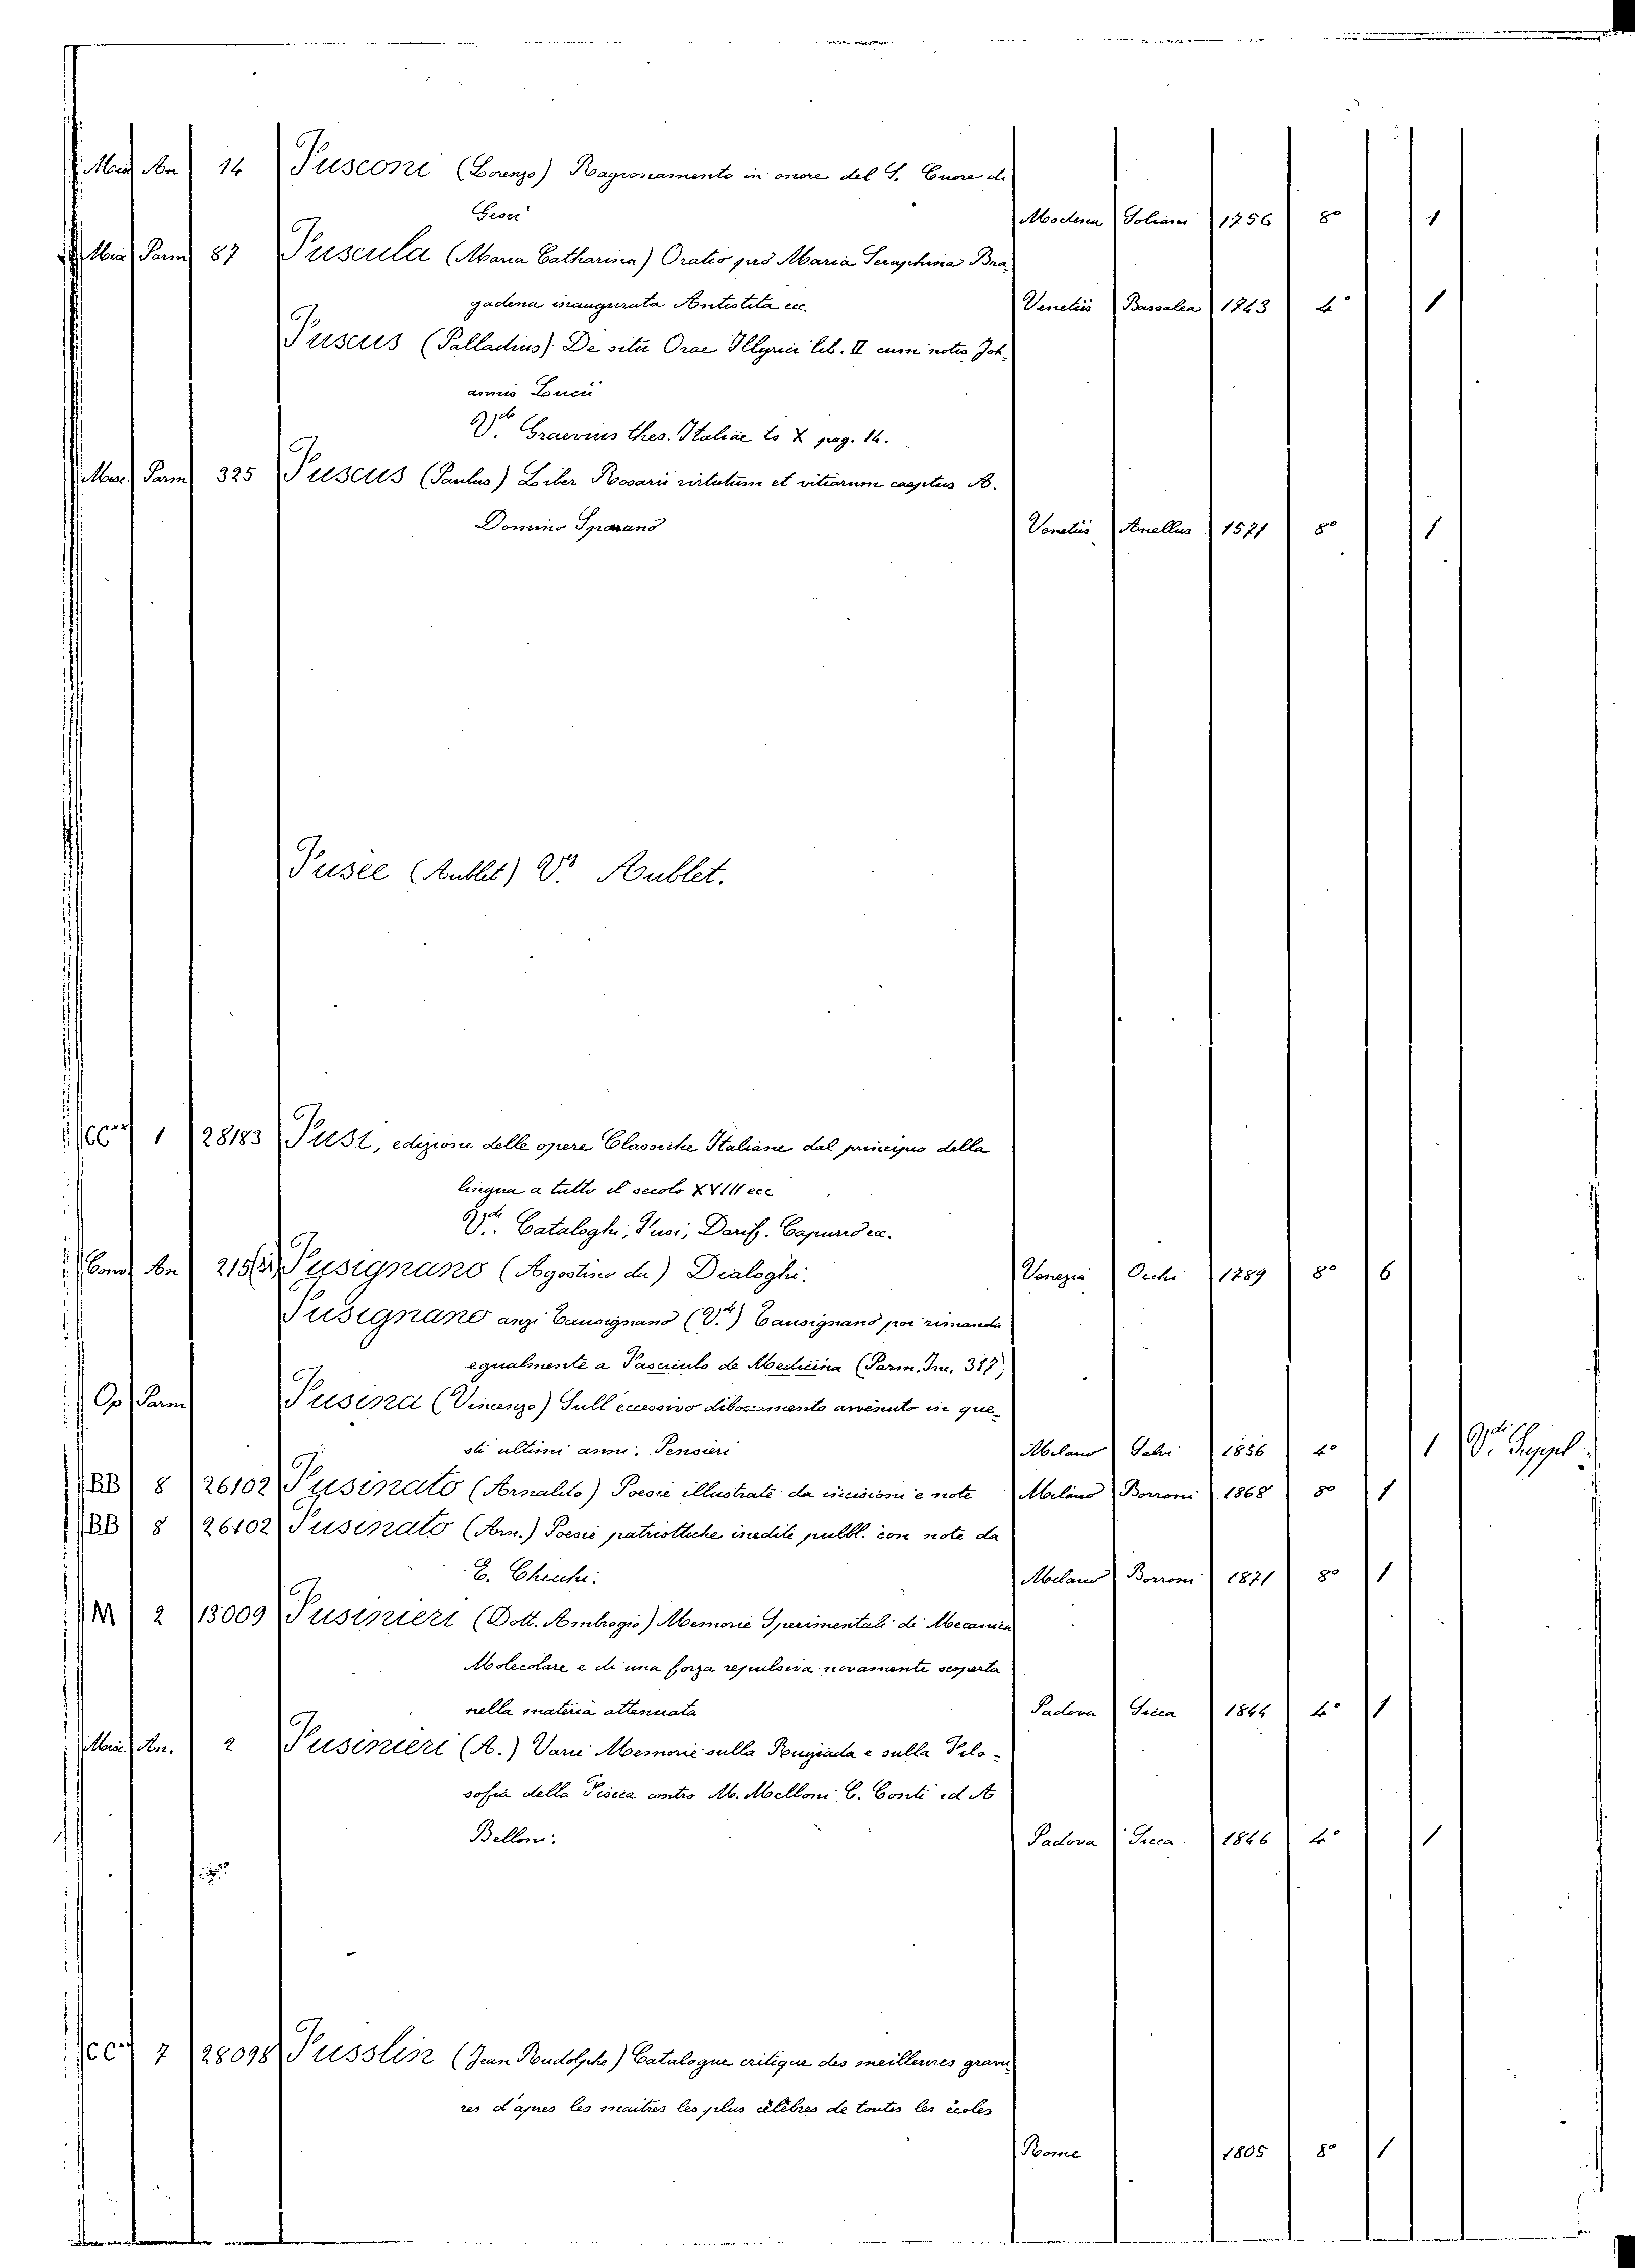 Misc An 14 Fusconi (Lorenzo) Ragionamento in onore del S. Cuore di
Gesù Modena Soliani 1756 8° 1
Misc Parm 87 Fuscula (Maria Catharina) Oratio pro Maria Seraphina Bra-
gadena inaugurata Antistita ecc. Venetiis Bassalea 1743 4° 1
Fuscus (Palladius) De situ Orae Illyrici lib. II cum notis Joh-
annis Lucii
V.di Graevius thes. Italiae to X pag. 14.
Misc. Parm 325 Fuscus (Paulus) Liber Rosarii virtutum et vitiorum caeptus A.
Domino Venetiis Anellus 1571 8° 1
Fusèe (Aublet) V.di Aublet.
CC 1 28183 Fusi, edizione delle opere Classiche Italiane dal principio della
lingua a tutto il secolo XVIII ecc
V.di Cataloghi, Fusi, Capurro ec.
Cons An Fusignano (Agostino da) Dialoghi. Venezia Occhi 1789 8° 6
Fusignano anzi Causignano (V.di) Causignano poi rimanda
egualmente a Fasciculo de Medicina (Parm. Inc. 317)
Op Parm Fusina (Vincenzo) Sull'eccessivo diboscamento avvenuto in que-
sti ultimi anni. Pensieri Milano Salvi 1856 4° 1 V.di Suppl.
BB 8 26102 Fusinato (Arnaldo) Poesie illustrate da incisioni e note Milano Borroni 1868 8° 1
BB 8 26102 Fusinato (Arn.) Poesie patriottiche inedite pubbl. con note da
E. Checchi. Milano Borroni 1871 8° 1
M 2 13009 Fusinieri (Dott. Ambrogio) Memorie Sperimentali di Mecanica
Molecolare e di una forza repulsiva novamente scoperta
nella materia attenuata Padova Sicca 1844 4° 1
Misc. An. 2 Fusinieri (A.) Varie Memorie sulla Rugiada e sulla Filo-
sofia della Fisica contro M. Melloni C. Conti ed A
Belloni. Padova Sicca 1846 4° 1
CC 7 28098 Fusslin (Jean Rudolphe) Catalogue critique des meilleures gravu-
res d'apres les maitres les plus célèbres de toutes les écoles
Rome 1805 8° 1